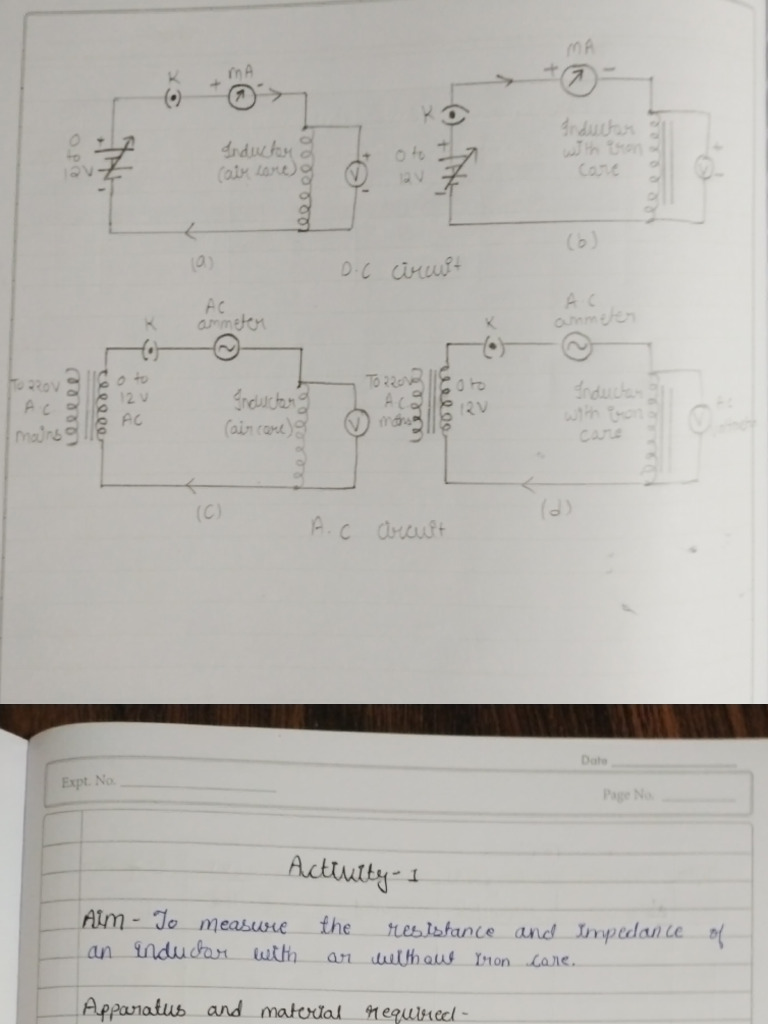 K
+ mA -
0
to
12V
+
-
Inductor
(air core)
V
+
-
(a)
mA
+ -
K
0 to
12V
+
-
Inductor
with iron
core
V
+
-
(b)
D.C circuit
AC
ammeter
K
To 220V
A.C
mains
0 to
12V
AC
Inductor
(air core)
V
(c)
A.C
ammeter
K
To 220V
A.C
mains
0 to
12V
Inductor
with iron
core
V
(d)
A.C circuit
Date
Expt. No.
Page No.
Activity-1
Aim - To measure the resistance and impedance of
an inductor with or without iron core.
Apparatus and material required-